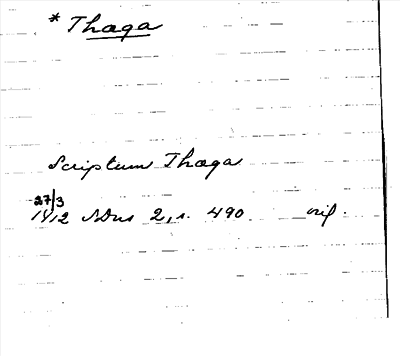 * Thaga
Scriptum Thaga
27/3
1412 SDns 2, s. 490. orig.